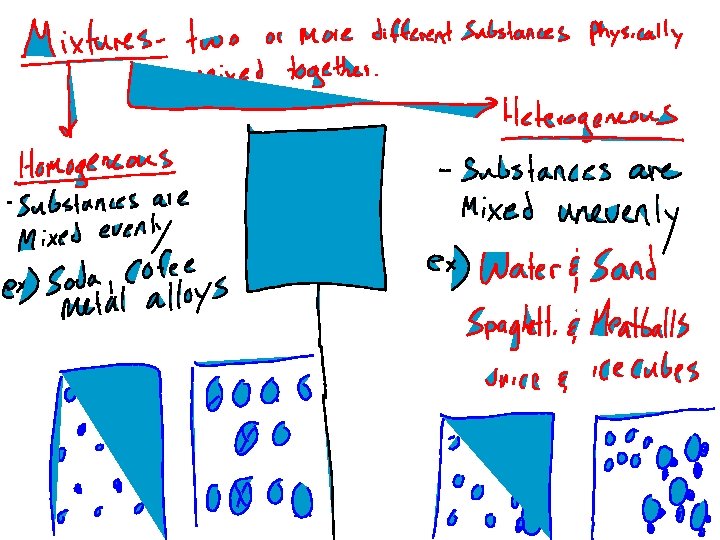 Mixtures- two or more different substances physically
mixed together.
Heterogeneous
Homogeneous
- Substances are
Mixed unevenly
- Substances are
Mixed evenly
ex) Soda, Cofee
Metal alloys
ex) Water & Sand
Spaghetti & Meatballs
& ice cubes